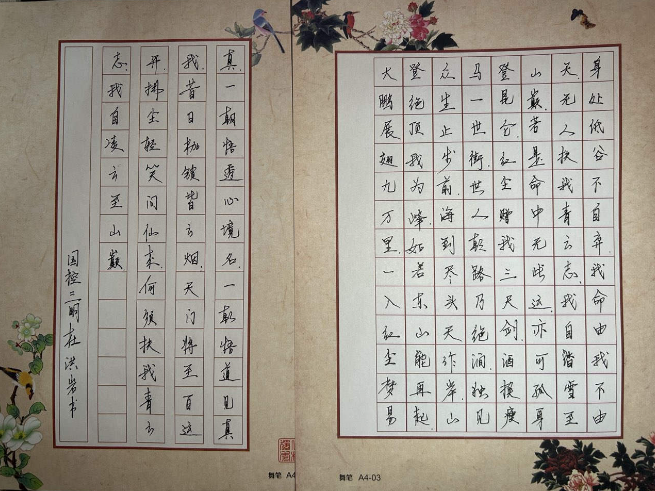 身处低谷不自弃,我命由我不由
天,无人扶我青云志,我自踏雪至
山巅,若是命中无此运,亦可孤身
登昆仑,红尘赠我三尺剑,酒馍瘦
马一世街,世人颠路乃绝涧,独见
众生止步前,海到尽头天作岸,山
登绝顶我为峰.如若东山能再起,
大鹏展翅九万里.一入红尘梦易
真,一朝悟透心境名.一朝悟道见真
我,昔日枷锁皆云烟.天门将至百运
开,拂尘轻笑问仙来.何须扶我青云
志,我自凌云至山巅
国控三明 杜洪岩书
舞笔 A4
舞笔 A4-03